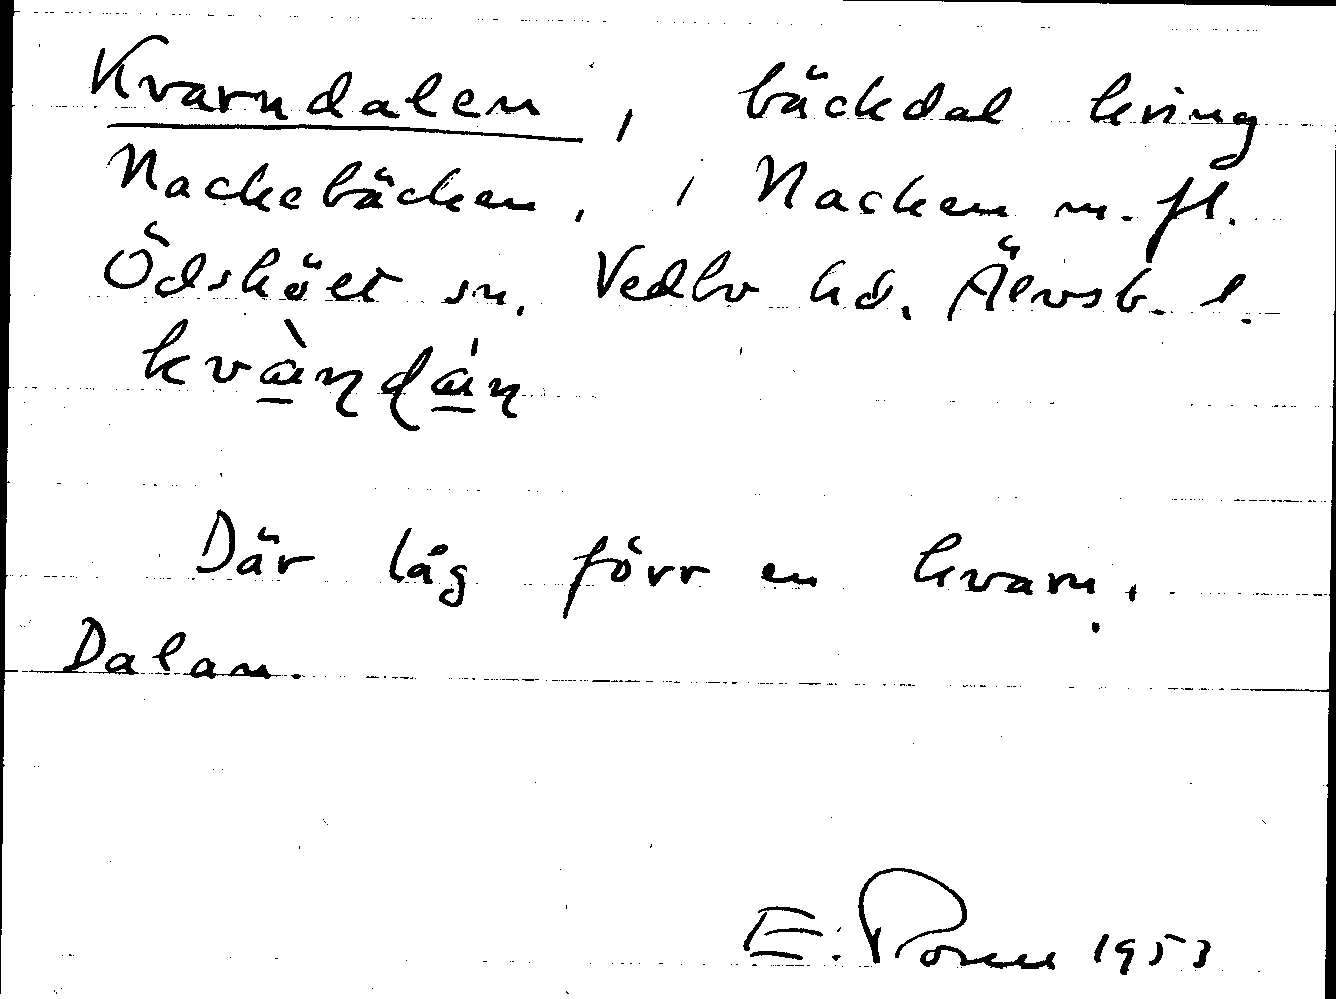 Kvarndalen, bäckdal kring
Nackebäcken, i Nacken m. fl.
Ödskölt sn. Vedbo hd. Älvsb. l.
kvàṇḍáṇ
Där låg förr en kvarn.
Dalan.
E. 1953